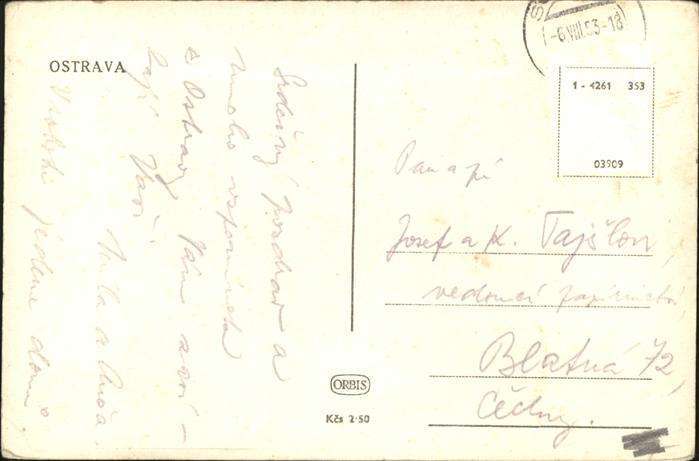 OSTRAVA
-6.VIII.53-18
1 - 4261 353
03909
Srdečný pozdrav a
mnoho vzpomínek
z Ostravy Vám zasí-
lají Vaši
Míla a
jedeme domů.
Pan a pí
Josef a K.
vedoucí
Blatná 72,
Čechy.
ORBIS
Kčs 2·50